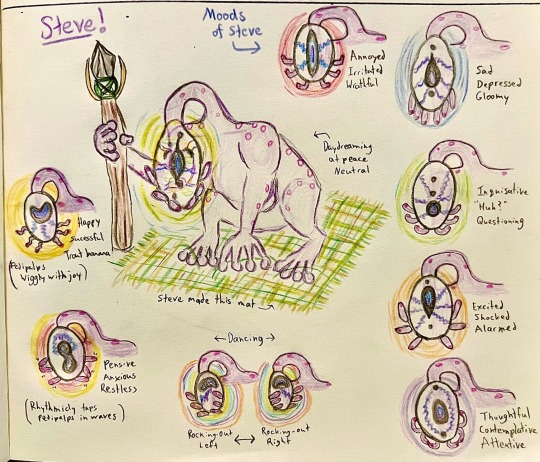 Steve!
Moods
of Steve
Annoyed
Irritated
Wrathful
Sad
Depressed
Gloomy
Daydreaming
at peace
Neutral
Inquisative
"Huh?"
Questioning
Happy
sucessful
Trant banana
(Pedipalps
Wiggly with joy)
Steve made this mat
Excited
Shocked
Alarmed
Pensive
Anxious
Restless
(Rhythmicly taps
Pedipalps in waves)
Dancing
Rocking-out
Left
Rocking-out
Right
Thoughtful
Contemplative
Attentive